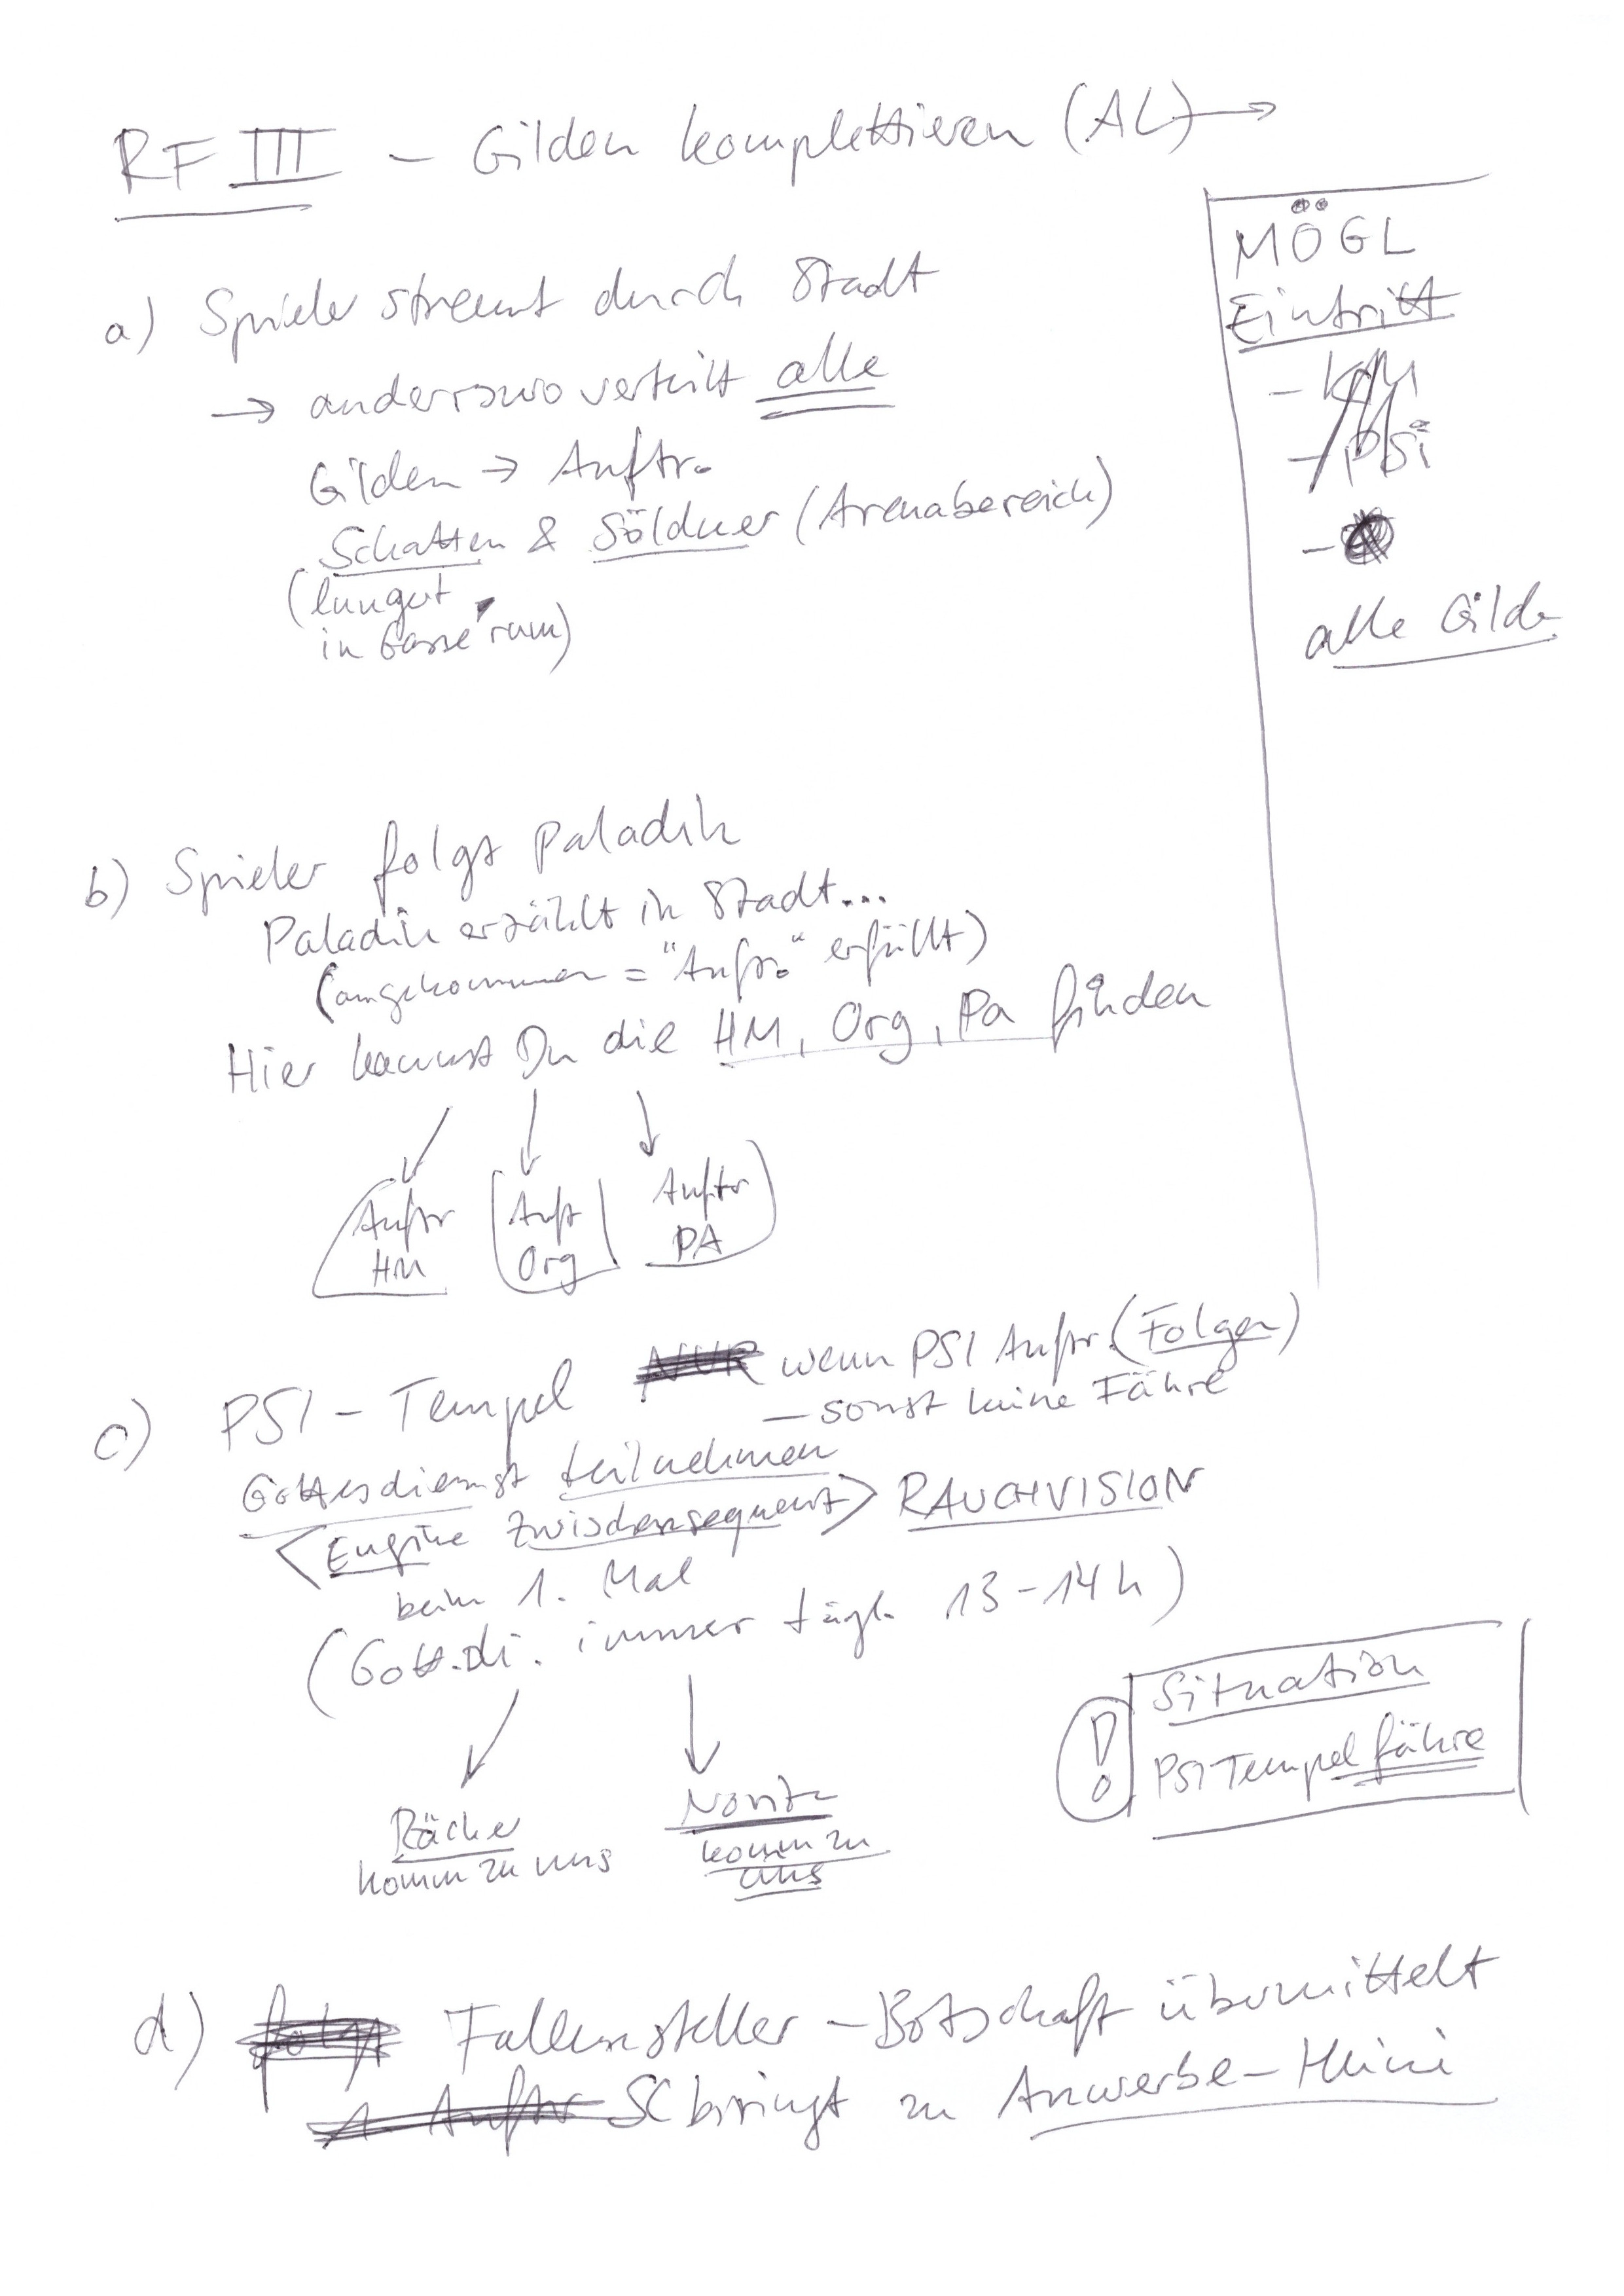 RF III – Gilden komplettieren (AL) →
MÖGL
Eintritt
– KdM
– PSI
–
alle Gilde
a) Spieler streunt durch Stadt
→ anderswo verteilt alle
Gilden → Auftr.
Schatten & Söldner (Arenabereich)
(lungert
in Gasse 'rum)
b) Spieler folgt Paladin
Paladin erzählt in Stadt...
(angekommen = "Auftr." erfüllt)
Hier kannst Du die HM, Org, Pa finden
Auftr HM
Auft Org
Auftr PA
c) PSI – Tempel NUR wenn PSI Auftr. (Folgen)
– sonst keine Fähre
Gottesdienst teilnehmen
<Engine Zwischensequenz> RAUCHVISION
beim 1. Mal
(Gott.di. immer tägl. 13–14h)
Rächer
komm zu uns
Novize
komm zu
uns
! Situation
PSI Tempel fähre
d) folgt Fallensteller – Botschaft übermittelt
1 Auftr SC bringt zu Anwerbe–Heini